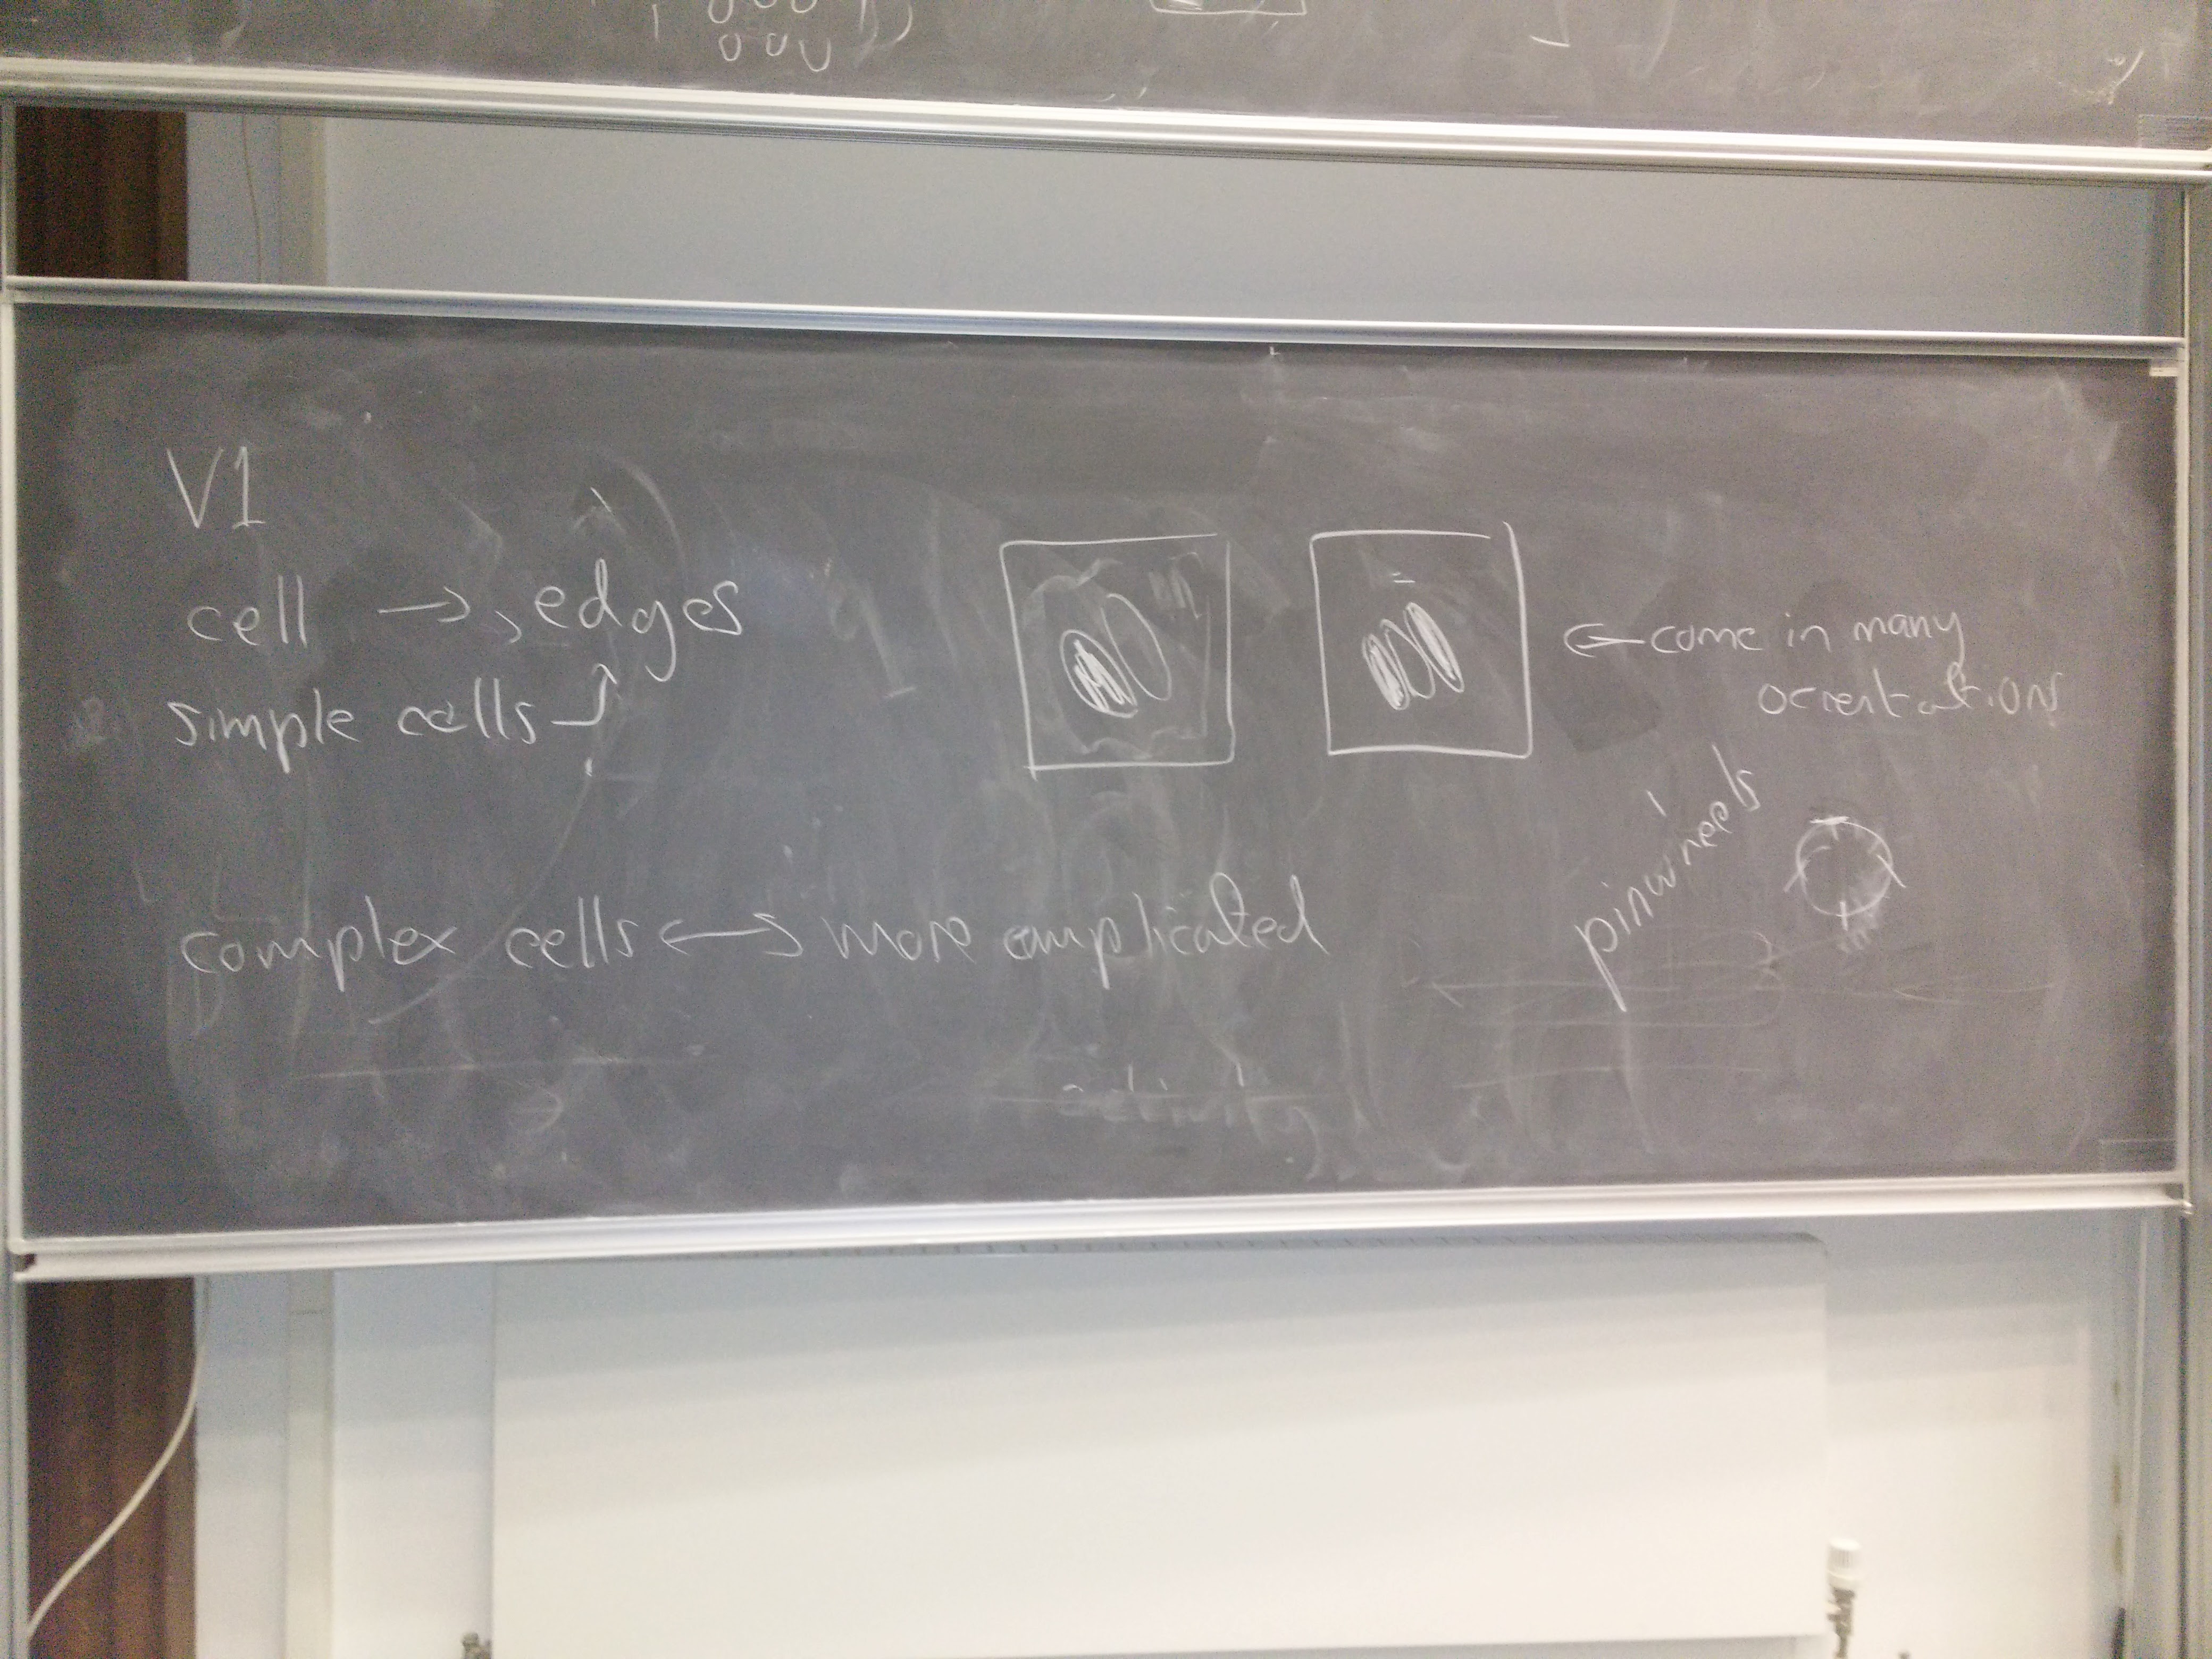 V1
cell → edges
simple cells
← come in many
orientations
pinwheels
complex cells ↔ more complicated
activity